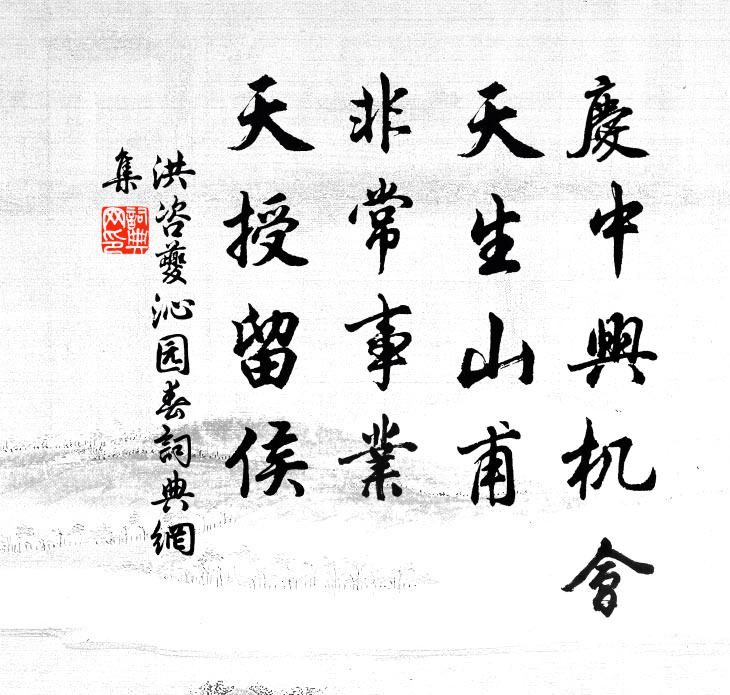 慶中興机會
天生山甫
非常事業
天授留侯
洪咨夔沁园春詞典網
集
詞典網印